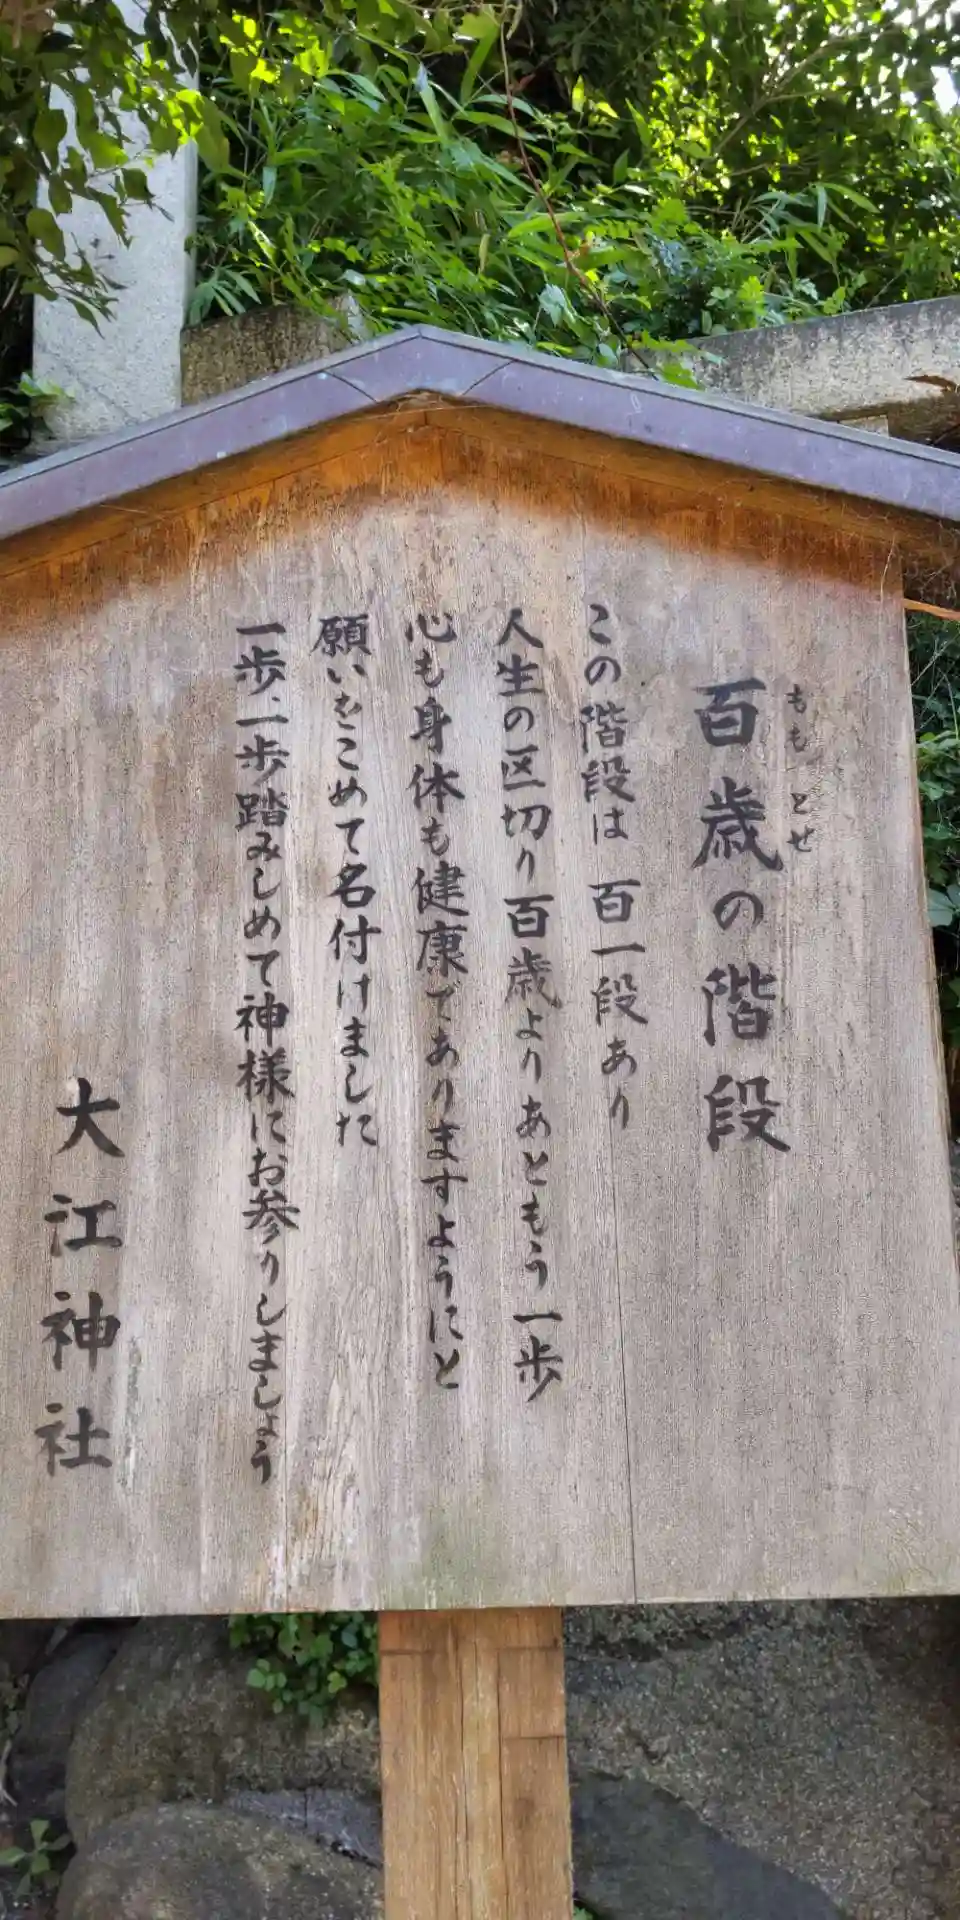 百歳の階段
ももとせ
この階段は 百一段あり
人生の区切り百歳よりあともう一歩
心も身体も健康でありますようにと
願いをこめて名付けました
一歩、一歩踏みしめて神様にお参りしましょう
大江神社